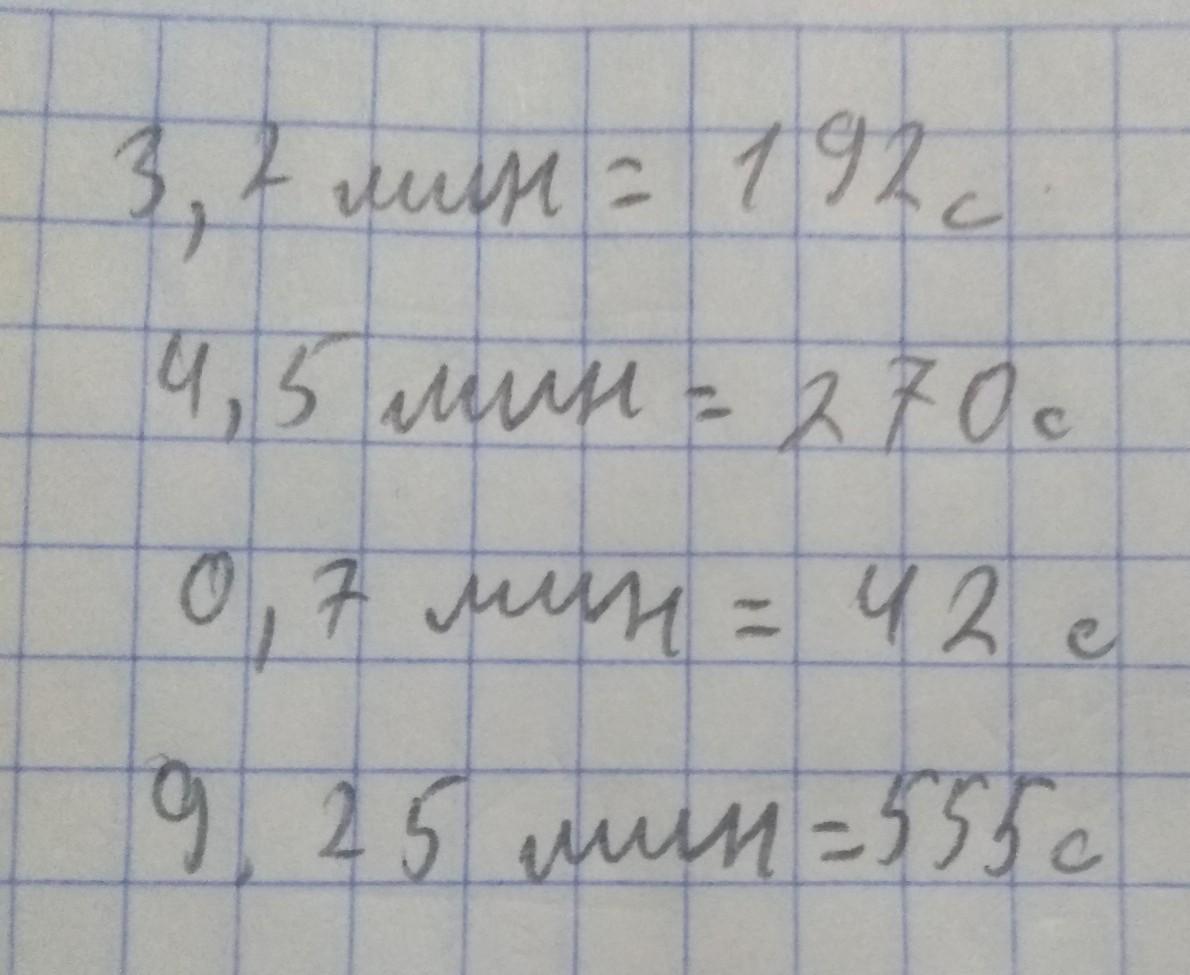 3,2 мин = 192 с
4,5 мин = 270 с
0,7 мин = 42 с
9,25 мин = 555 с